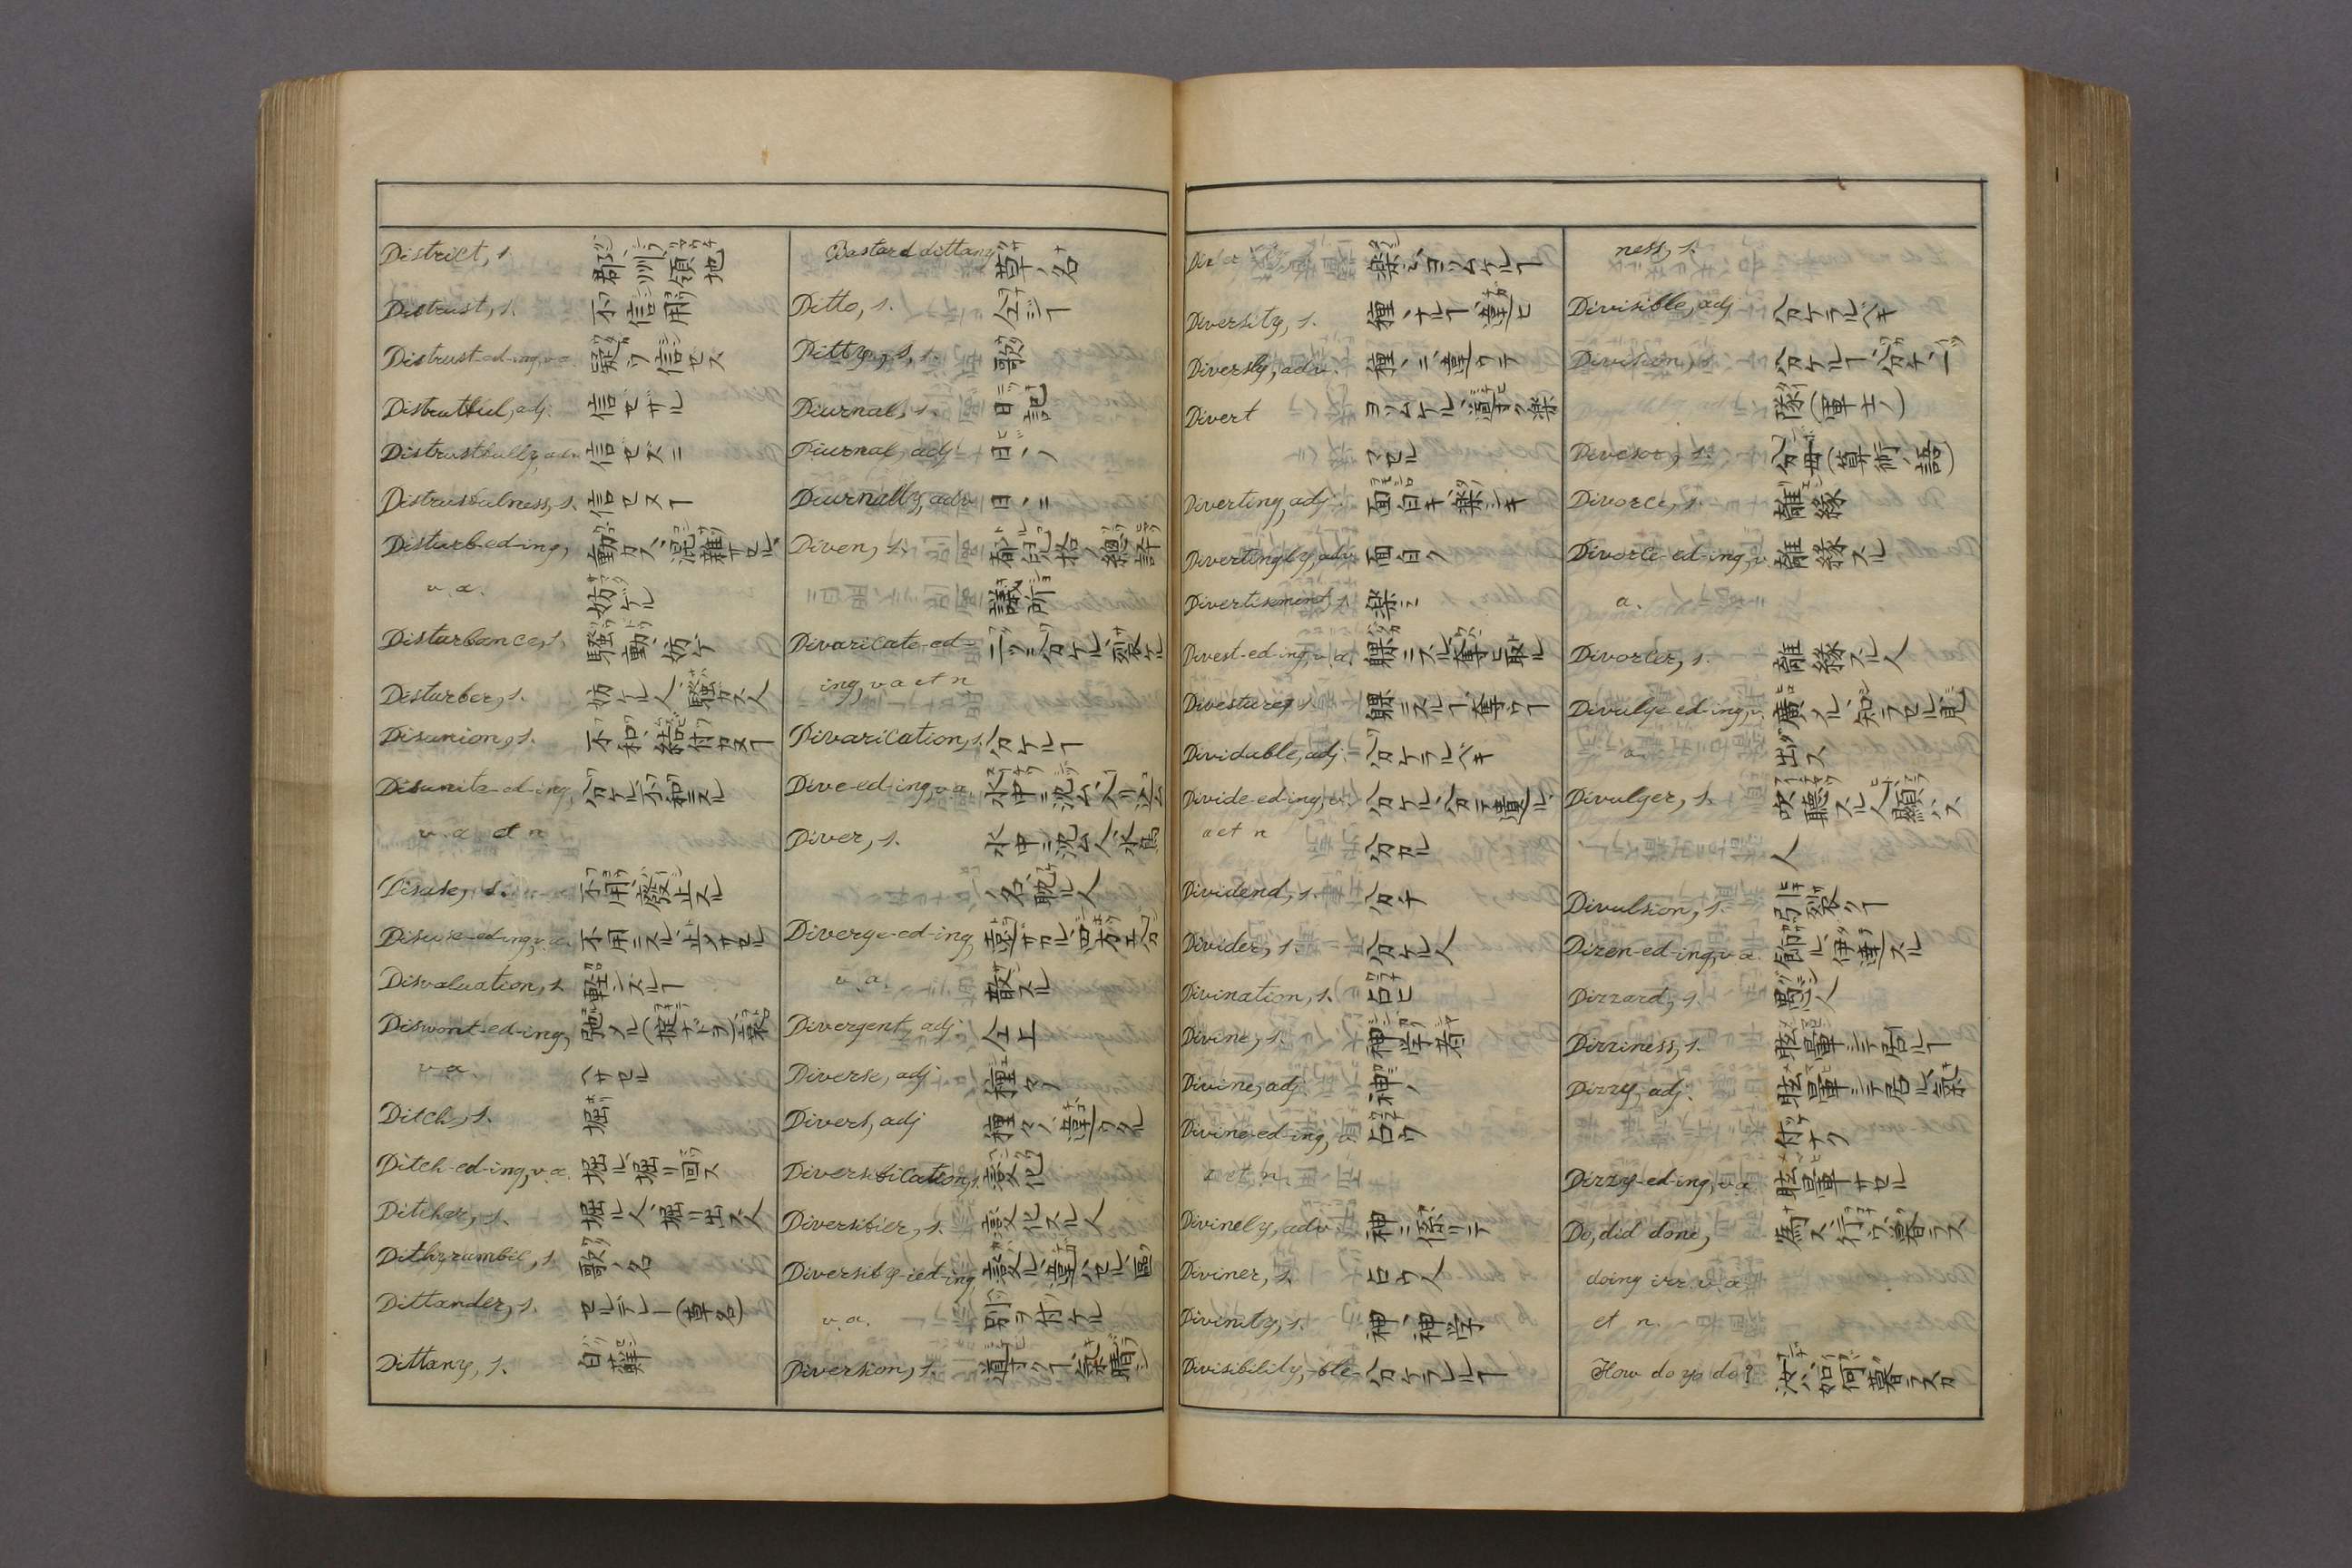 District, s. 郡、州、領地
Distrust, s. 不信用
Distrust-ed-ing, v.a. 疑フ、信セス
Distrustful, adj. 信セザル
Distrustfully, adv. 信セズニ
Distrustfulness, s. 信セヌヿ
Disturb-ed-ing, 動カス、混雜サセル
v.a. 妨ゲル
Disturbance, s. 騒動、妨ゲ
Disturber, s. 妨ケル人、騒カス人
Disunion, s. 不和、結付カヌヿ
Disunite-ed-ing, 分ケル、不和ニスル
v.a et n
Disuse, s. 不用、廢止スル
Disuse-ed-ing, v.a. 不用ニスル、止メサセル
Disvaluation, s. 軽ンズルヿ
Diswont-ed-ing,
v.a. ヘサセル
Ditch, s. 堀
Ditch-ed-ing, v.a. 堀ル、堀リ回ス
Ditcher, s. 堀ル人、堀リ出ス人
Dithyrambic, s. 歌ノ名
Dittander, s. セルデレー(草名)
Dittany, s. 白蘚
Bastard dittany 草ノ名
Ditto, s. 仝シヿ
Ditty, s. 歌
Diurnal, s. 日記
Diurnal, adj 日〻ノ
Diurnally, adv 日〻ニ
Diven, s.
議所
Divaricate-ed- 二ツニ分ケル、裂ケル
ing, v a et n
Divarication, s. 分ケルヿ
Dive-ed-ing, v.a. 水中ニ沈ム、入リ込ム
Diver, s. 水中ニ沈ム人、水鳥
ノ名、耽ル人
Diverge-ed-ing, 遠サカル、四方エ分
v.a. 散スル
Divergent, adj. 仝上
Diverse, adj 種々ノ
Divers, adj 種々ノ、違フタル
Diversification, s. 變化
Diversifier, s. 變化スル人
Diversify-ied-ing, 變ヘル、違ハセル、區
v.a. 別ヲ付ケル
Diversion, s. 道ヲヨケルヿ、氣晴シ
樂ミ、ヨソムケルヿ
Diversity, s. 種〻ナルヿ、違ヒ
Diversly, adv. 種〻ニ、違フテ
Divert ヨソムケル、道ヲヨケル、樂
マセル
Diverting, adj. 面白キ、樂シキ
Divertingly, adv 面白ク
Divertisment, s. 樂ミ
Divest-ed-ing, v a. 裸ニスル、奪ヒ取ル
Divesture, s. 裸ニスルヿ、奪フヿ
Dividable, adj. 分ケラルベキ
Divide-ed-ing, v. 分ケル、分テ遣ル、
a et n 分カル
Dividend, s. 分チ
Divider, s. 分ケル人
Divination, s. 占ヒ
Divine, s. 神学者
Divine, adj. 神ノ
Divine-ed-ing, v. 占ウ
a et n.
Divinely, adv. 神ニ依リテ
Diviner, s. 占ウ人
Divinity, s. 神、神学
Divisibility, -ble- 分ケラレルヿ
ness, s.
Divisible, adj 分ケラルベキ
Division, s. 分ケルヿ、分チ、一
隊(軍士ノ)
Divisor, s. 分母(算術ノ語)
Divorce, s. 離縁
Divorce-ed-ing, v. 離縁スル
a.
Divorcer, s. 離縁スル人
Divulge-ed-ing, v. 廣メル、知ラセル、見
a. 出ス
Divulger, s. 吹聴スル人、顕ハス
人
Divulsion, s. 引裂クヿ
Dizen-ed-ing, v a. 飾ル、伊達スル
Dizzard, s. 愚人
Dizziness, s. 眩暈シテ居ルヿ
Dizzy, adj. 眩暈シテ居ル、氣
付ナク
Dizzy-ed-ing, v a 眩暈サセル
Do, did done, 為ス、行フ、暮ラス
doing irr. v. a.
et n.
How do yo do? 汝ハ如何暮ラスカ